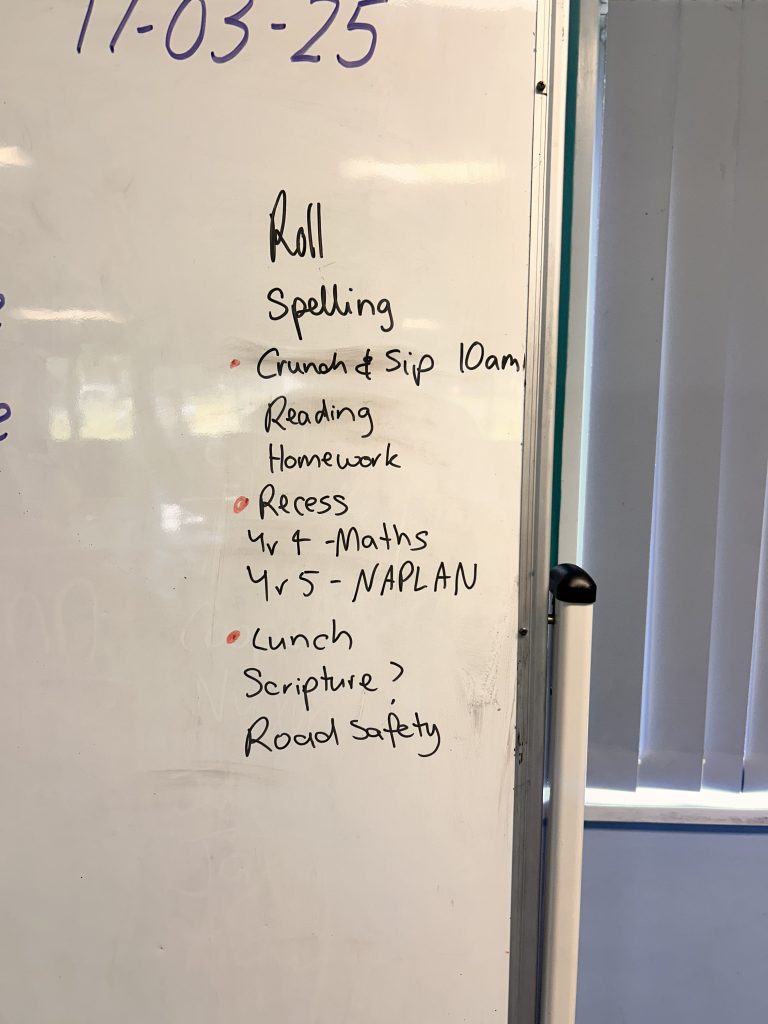 17-03-25
Roll
Spelling
Crunch & Sip 10am
Reading
Homework
Recess
Yr 4 - Maths
Yr 5 - NAPLAN
Lunch
Scripture ?
Road Safety